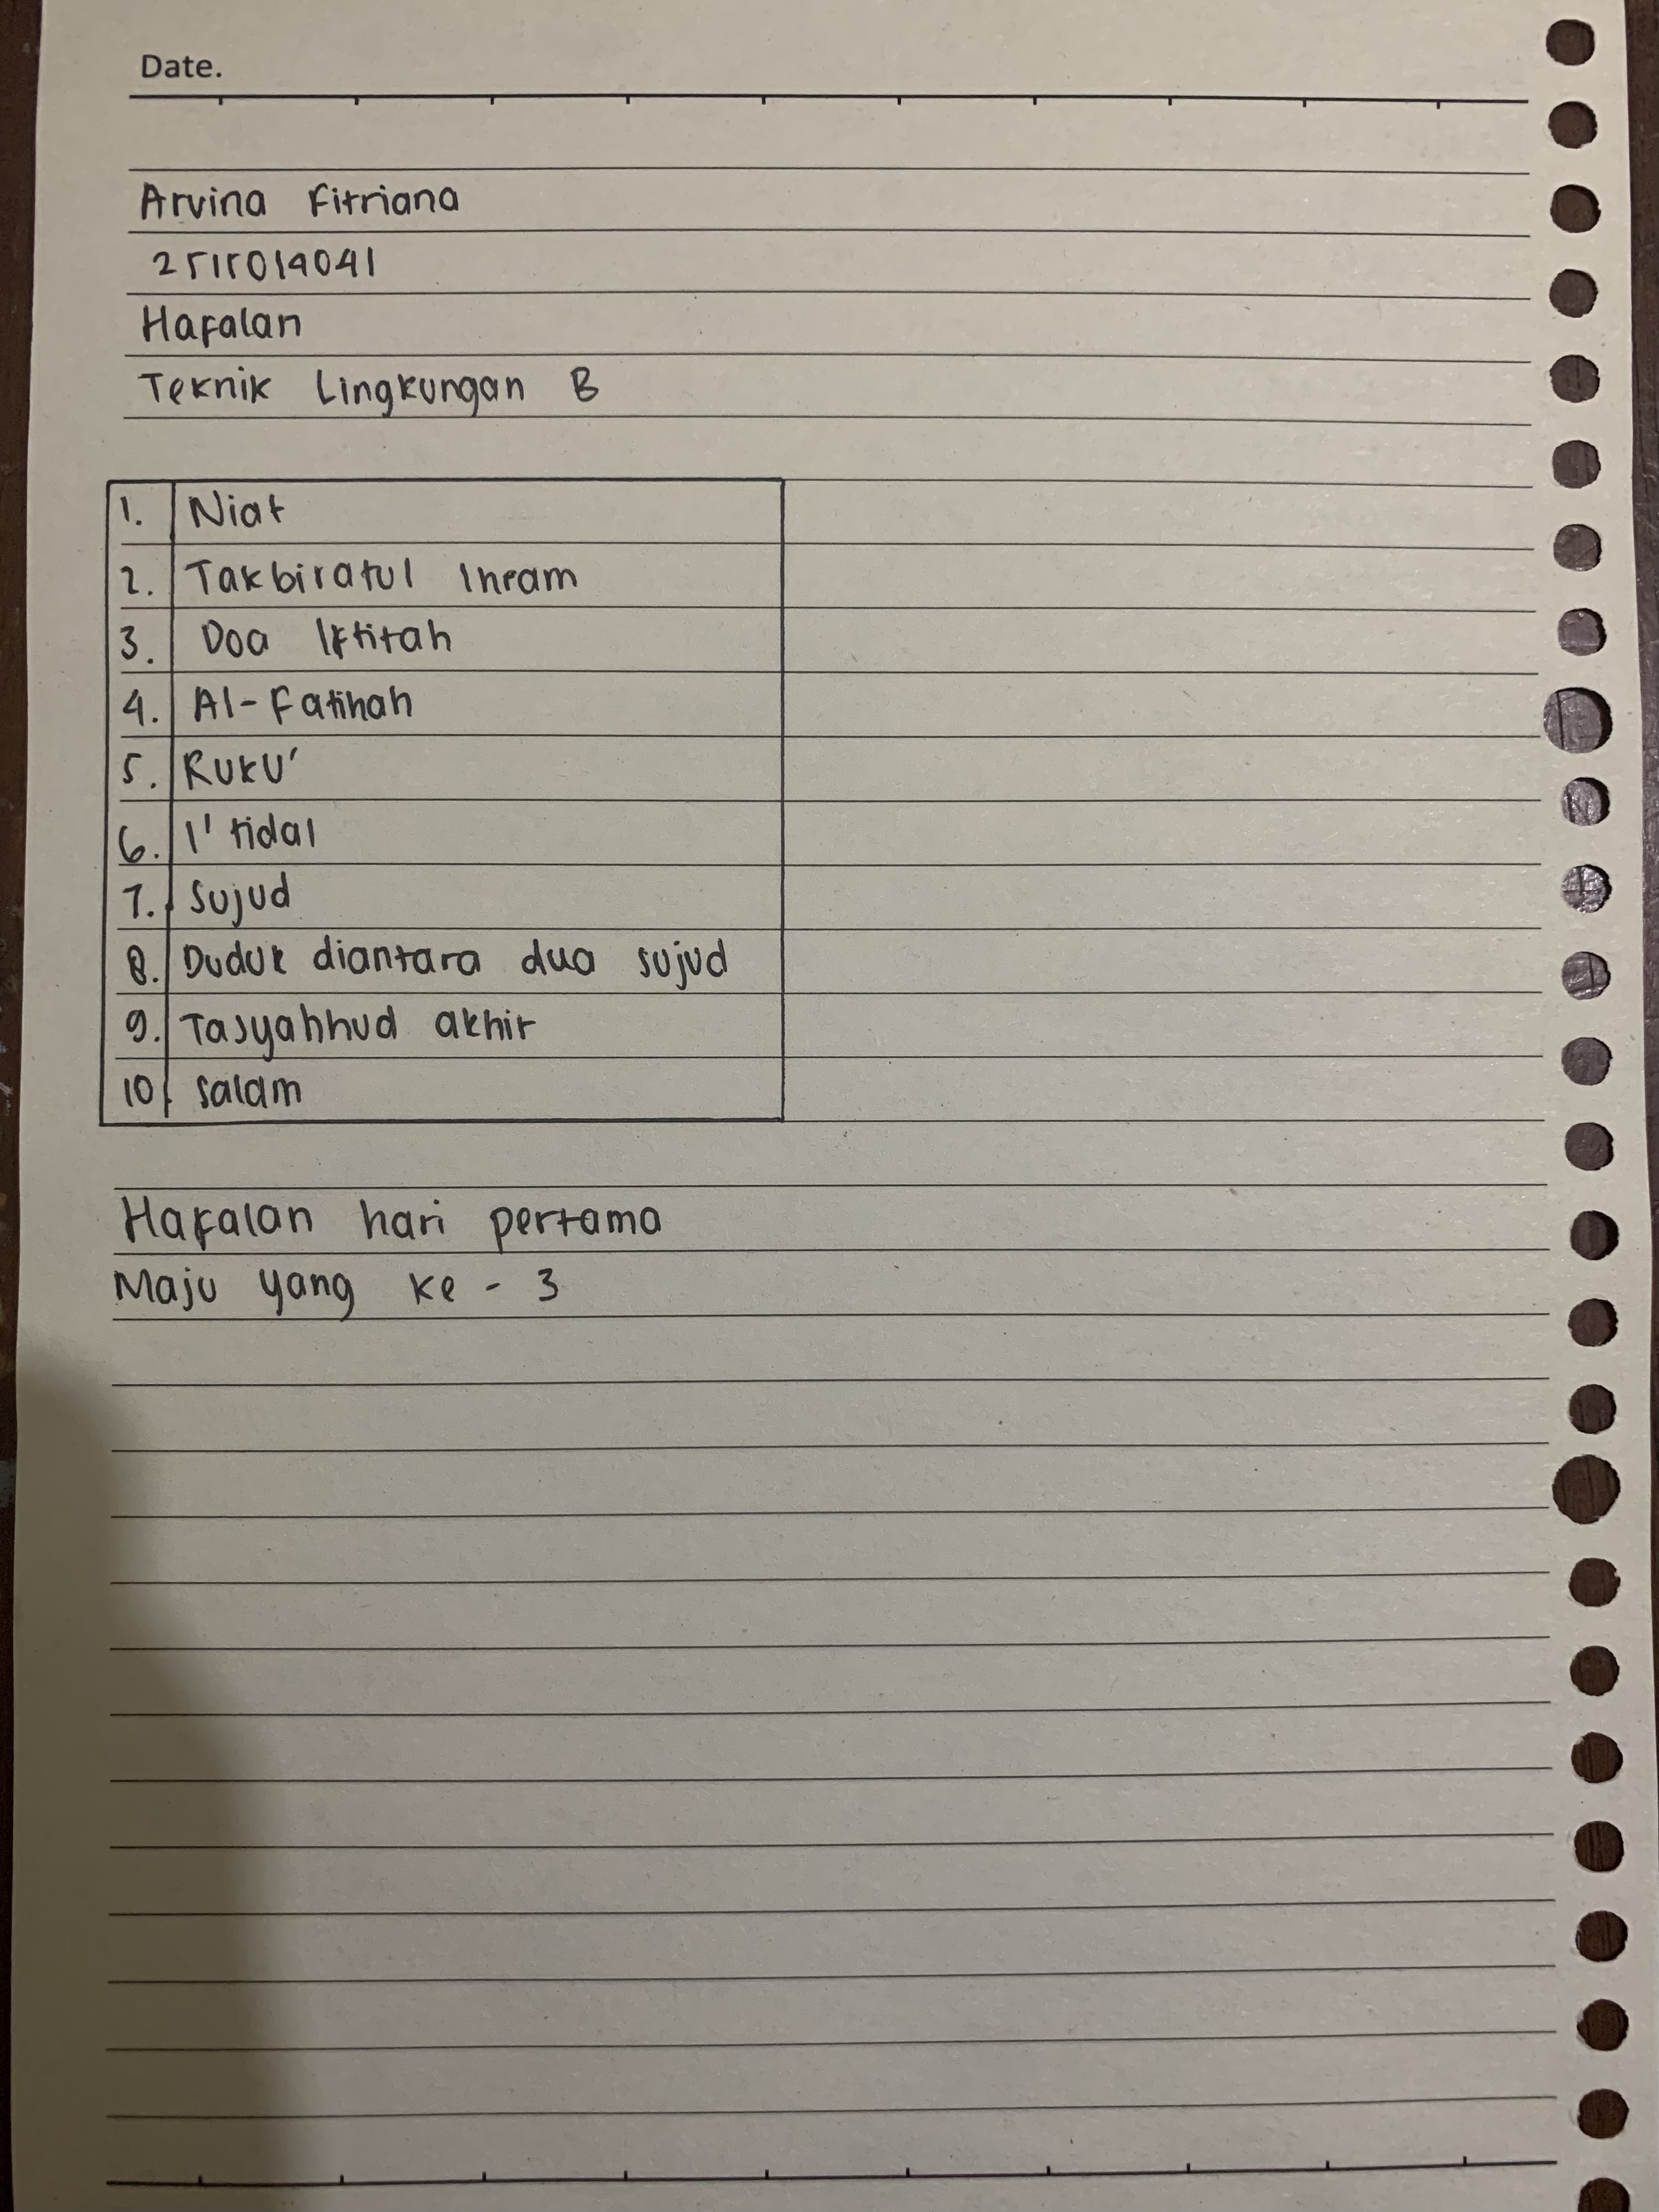 Date.
Arvina Fitriana
2515014041
Hafalan
Teknik Lingkungan B
1. Niat
2. Takbiratul Ihram
3. Doa Iftitah
4. Al-Fatihah
5. Ruku'
6. I'tidal
7. Sujud
8. Duduk diantara dua sujud
9. Tasyahhud akhir
10. salam
Hafalan hari pertama
Maju yang ke - 3